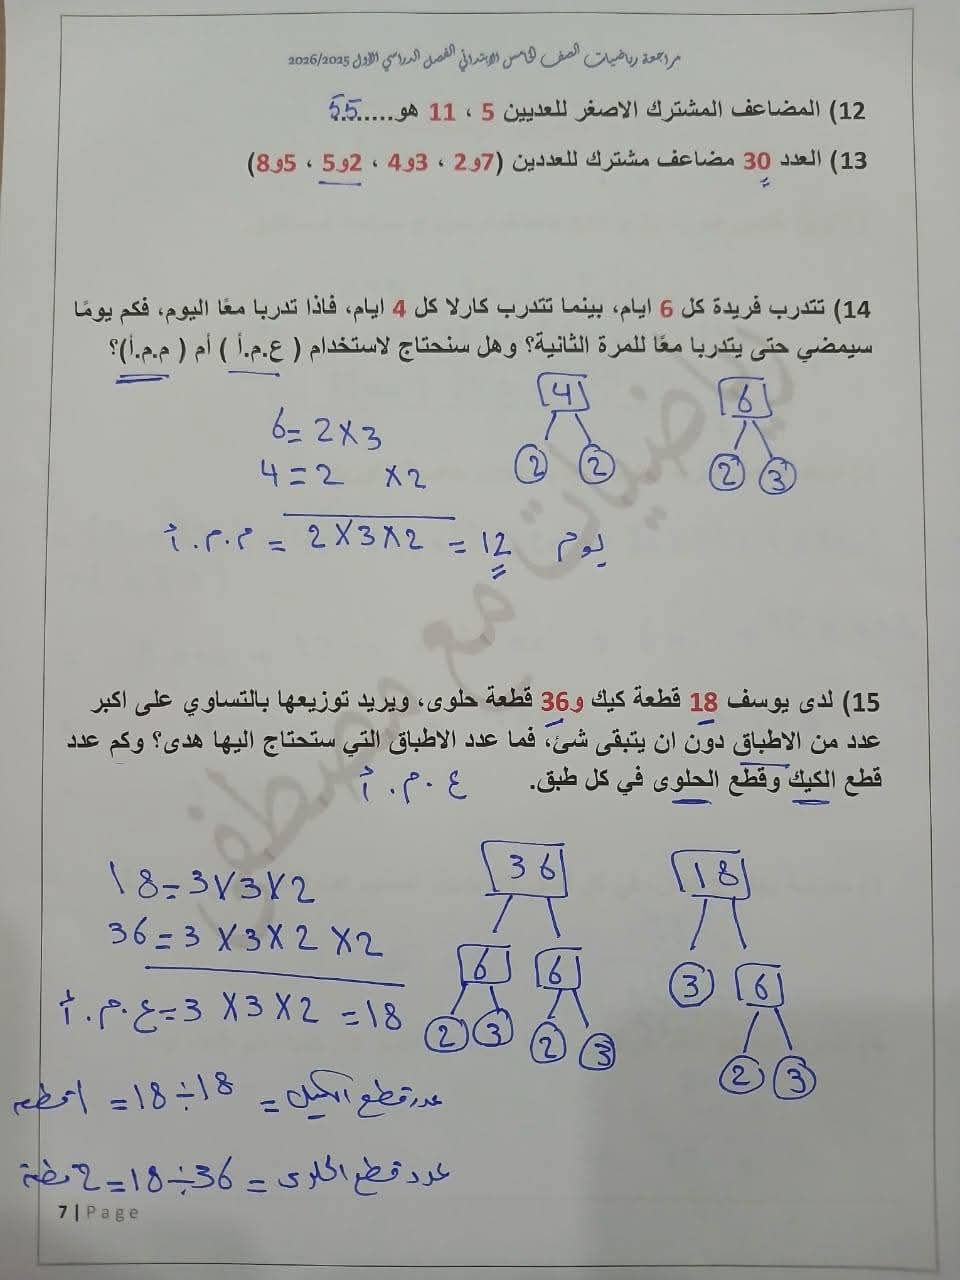 مراجعة رياضيات الصف الخامس الابتدائي الفصل الدراسي الاول 2026/2025
12) المضاعف المشترك الاصغر للعديين 5 ، 11 هو......55
13) العدد 30 مضاعف مشترك للعددين (7و2 ، 3و4 ، 2و5 ، 5و8)
14) تتدرب فريدة كل 6 ايام، بينما تتدرب كارلا كل 4 ايام، فاذا تدربا معًا اليوم، فكم يومًا
سيمضي حتى يتدربا معًا للمرة الثانية؟ وهل سنحتاج لاستخدام ( ع.م.أ ) أم ( م.م.أ)؟
6 4
2 3 2 2
6=2×3
4=2 ×2
م.م.أ = 2×3×2 = 12 يوم
15) لدى يوسف 18 قطعة كيك و36 قطعة حلوى، ويريد توزيعها بالتساوي على اكبر
عدد من الاطباق دون ان يتبقى شئ، فما عدد الاطباق التي ستحتاج اليها هدى؟ وكم عدد
قطع الكيك وقطع الحلوى في كل طبق. ع.م.أ
18 36
3 6 6 6
2 3 2 3 2 3
18=3×3×2
36=3×3×2×2
ع.م.أ=3×3×2=18
عدد قطع الكيك = 18÷18 = 1 قطعة
عدد قطع الحلوى = 36÷18=2 قطعة
7 | Page
رياضيات مع مصطفى